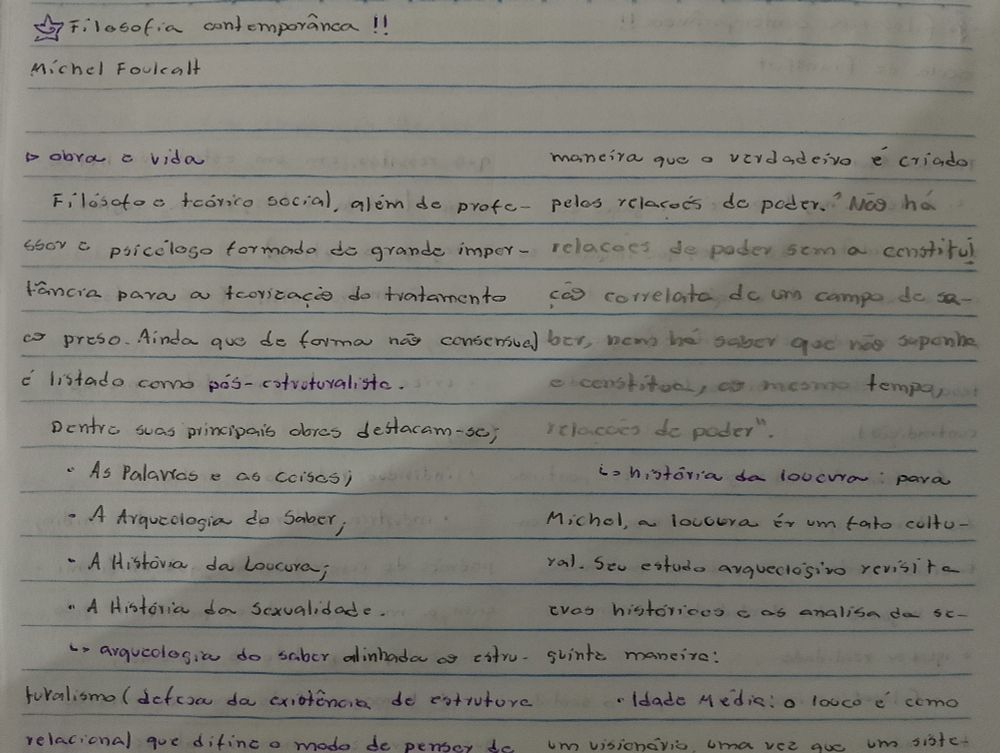 Filosofia contemporânea !!
Michel Foulcalt
▷ obra e vida
Filósofo e teórico social, além de profe-
ssor e psicólogo formado de grande impor-
tância para a teorização do tratamento
ao preso. Ainda que de forma não consensual
é listado como pós-estruturalista.
Dentre suas principais obras destacam-se;
• As Palavras e as coisas;
• A Arqueologia do Saber;
• A História da Loucura;
• A História da Sexualidade.
↳ arqueologia do saber alinhada ao estru-
turalismo (defesa da existência de estrutura
relacional que difine o modo de pensar de
maneira que o verdadeiro é criado
pelas relações de poder. "Não há
relações de poder sem a constitui
ção correlata de um campo de sa-
ber, nem há saber que não suponha
e constitua, ao mesmo tempo,
relações de poder".
↳ história da loucura: para
Michel, a loucura ér um fato cultu-
ral. Seu estudo arqueológivo revisita
eras históricos e as analisa da se-
guinte maneira:
• Idade Média: o louco é como
um visionário, uma vez que um siste-